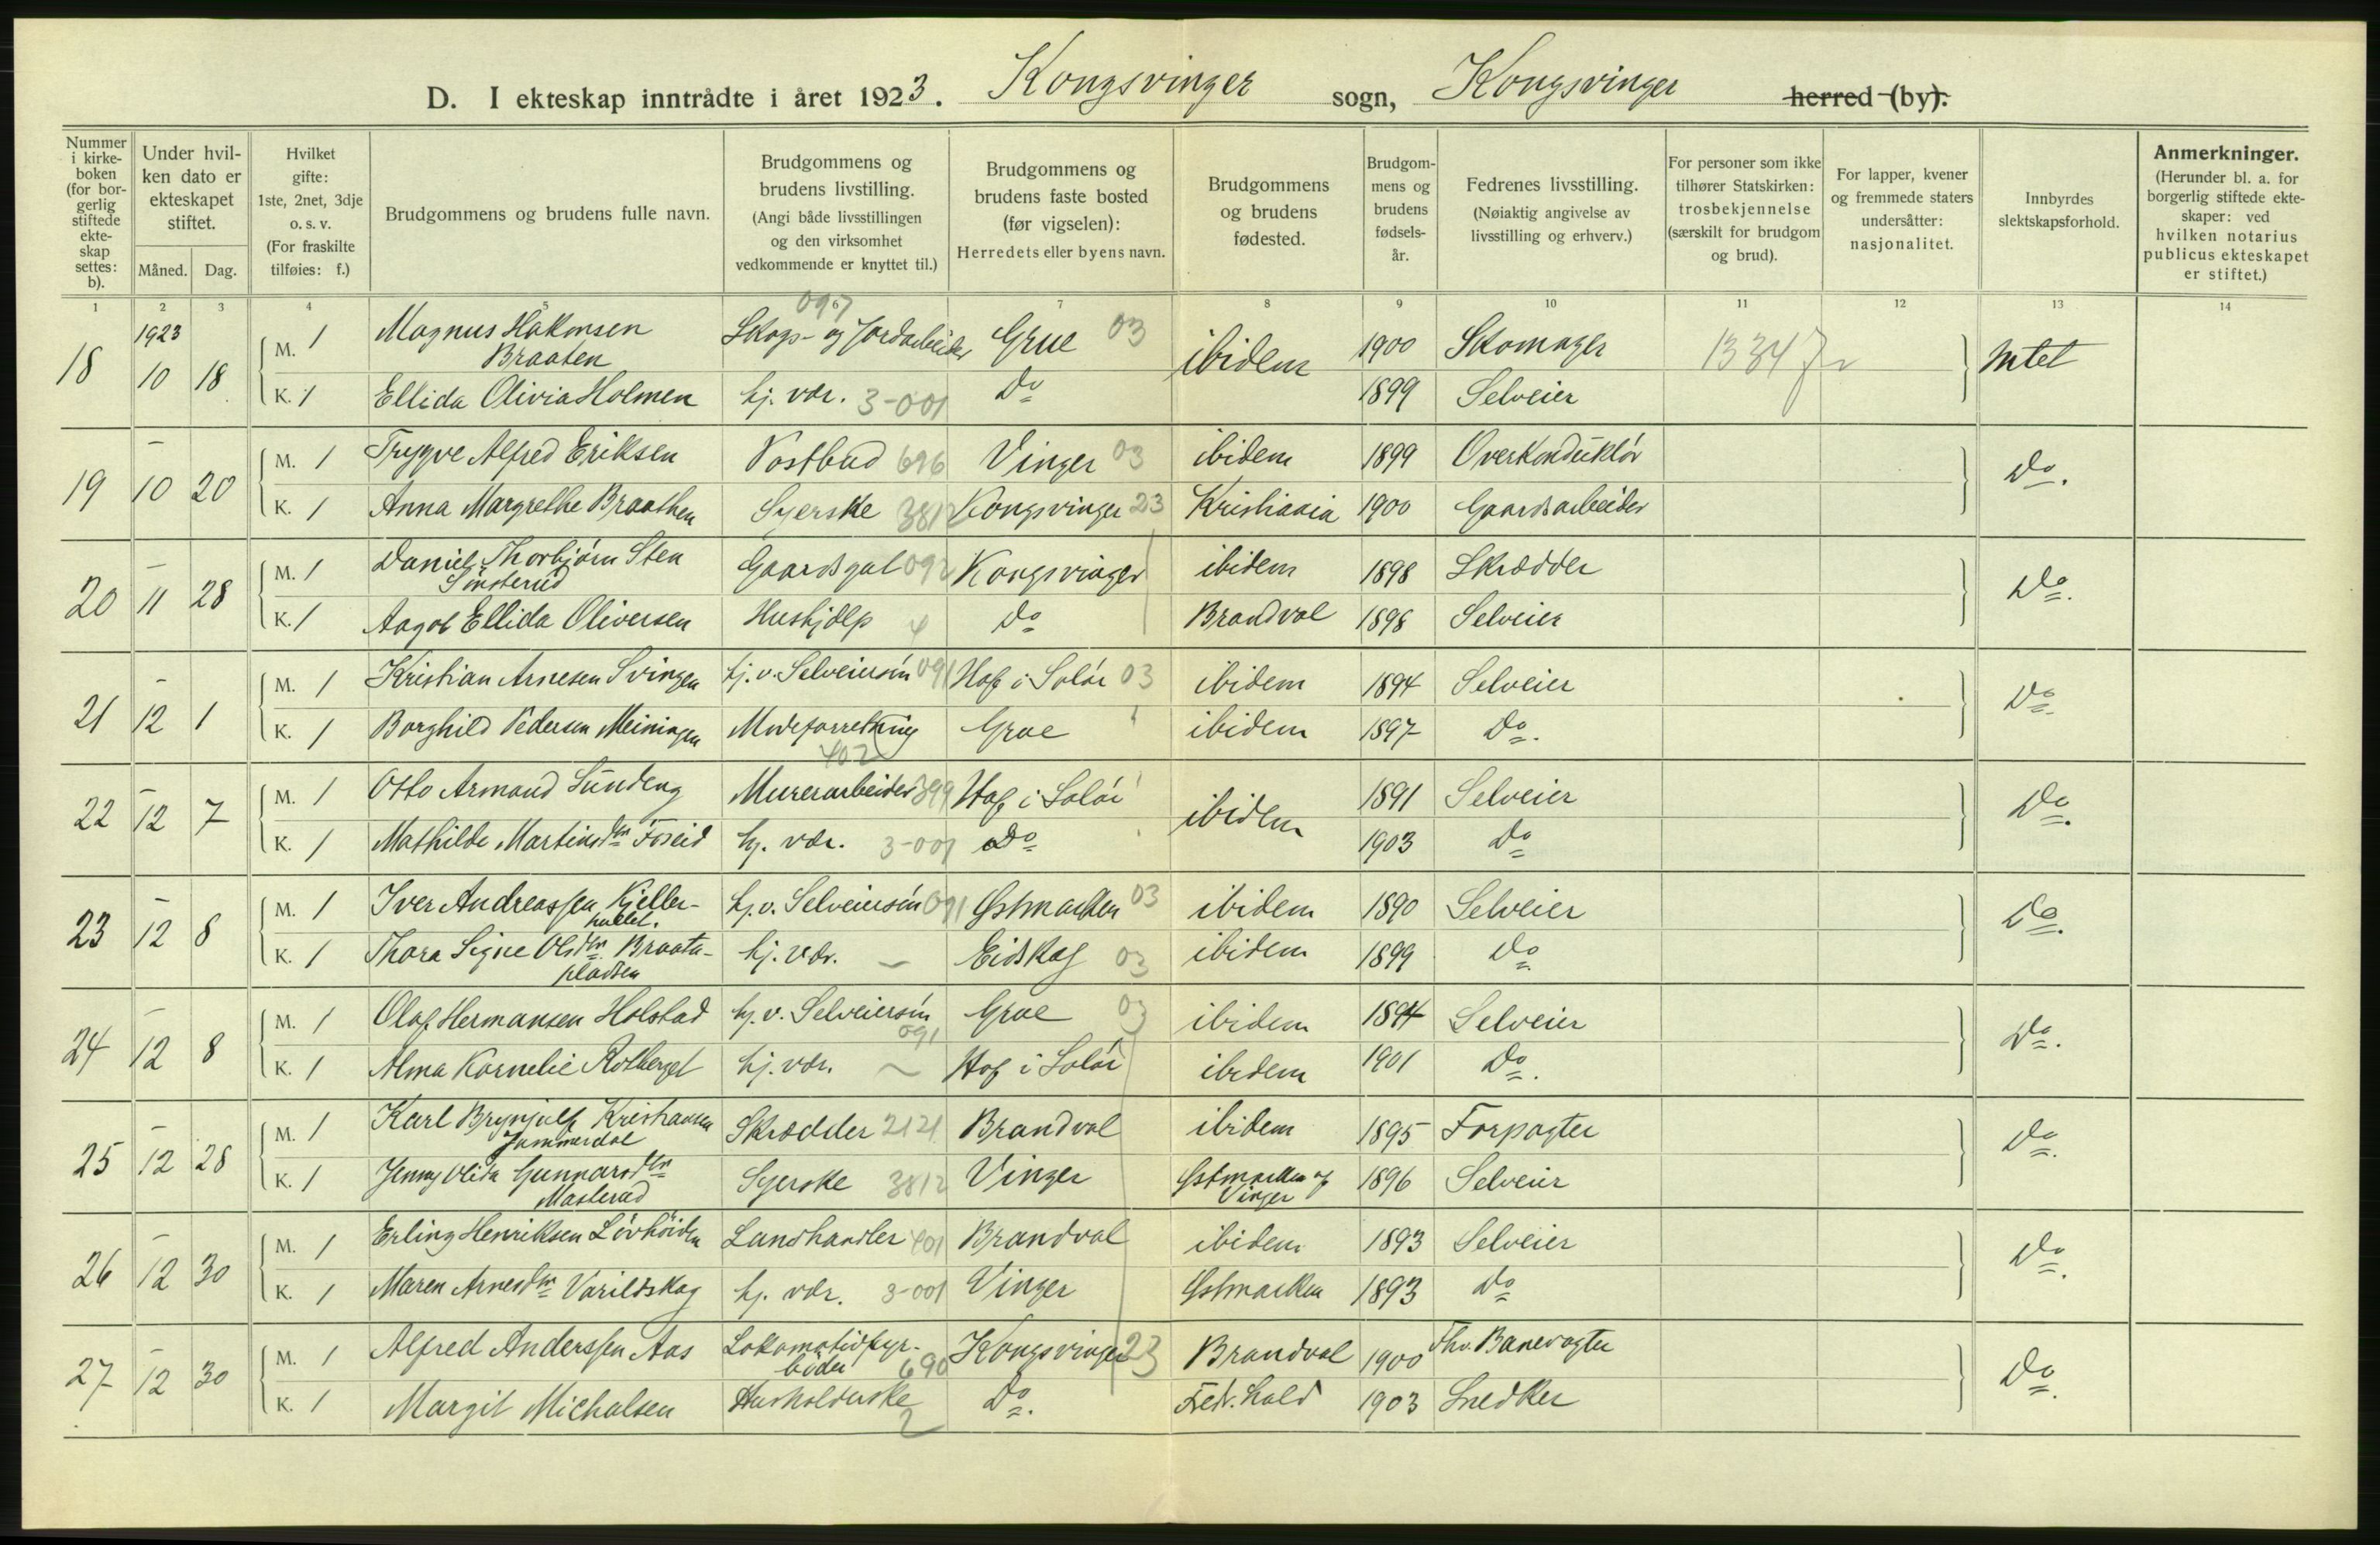 D. I ekteskap inntrådte i året 1923. Kongsvinger sogn, Kongsvinger herred (by).
Nummer i kirkeboken (for borgerlig stiftede ekteskap settes: b).
Under hvilken dato er ekteskapet stiftet.
Måned. Dag.
Hvilket gifte: 1ste, 2net, 3dje o. s. v. (For fraskilte tilføies: f.)
Brudgommens og brudens fulle navn.
Brudgommens og brudens livstilling. (Angi både livsstillingen og den virksomhet vedkommende er knyttet til.)
Brudgommens og brudens faste bosted (før vigselen): Herredets eller byens navn.
Brudgommens og brudens fødested.
Brudgommens og brudens fødsels-år.
Fedrenes livsstilling. (Nøiaktig angivelse av livsstilling og erhverv.)
For personer som ikke tilhører Statskirken: trosbekjennelse (særskilt for brudgom og brud).
For lapper, kvener og fremmede staters undersåtter: nasjonalitet.
Innbyrdes slektskapsforhold.
Anmerkninger. (Herunder bl. a. for borgerlig stiftede ekteskaper: ved hvilken notarius publicus ekteskapet er stiftet.)
1 2 3 4 5 6 7 8 9 10 11 12 13 14
1923
18 10 18 M. 1 Magnus Hakonsen Braaten Skogs- og Jordarbeider 097 Grue 03 ibidem 1900 Skomager 1334 Intet
K. 1 Ellida Olivia Holmen hj. vær. 3-001 Do 1899 Selveier
19 10 20 M. 1 Trygve Alfred Eriksen Postbud 696 Vinger 03 ibidem 1899 Overkonduktör Do.
K. 1 Anna Margrethe Braathen Syerske 3812 Kongsvinger 23 Kristiania 1900 Gaardsarbeider
20 11 28 M. 1 Daniel Thorbjörn Sten Sönsterud Gaardsgut 092 Kongsvinger ibidem 1898 Skrædder Do.
K. 1 Aagot Ellida Oliversen Hushjælp 4 Do Brandval 1898 Selveier
21 12 1 M. 1 Kristian Arnesen Svingen hj. v. Selveiersön 091 Hof i Solör 03 ibidem 1894 Selveier Do
K. 1 Borghild Pedersen Meiningen Modeforretning 402 Grue ibidem 1897 Do.
22 12 7 M. 1 Otto Armand Sundeng Murerarbeider 399 Hof i Solör ibidem 1891 Selveier Do.
K. 1 Mathilde Martinsdtr Foseid hj. vær. 3-001 Do 1903 Do
23 12 8 M. 1 Iver Andreassen Kjellerhullet. hj. v. Selveiersön 091 Østmarken 03 ibidem 1890 Selveier Do.
K. 1 Thora Signe Olsdtr. Braatapladsen hj. vær. Eidskog 03 ibidem 1899 Do
24 12 8 M. 1 Olaf Hermansen Holstad hj. v. Selveiersön 091 Grue 03 ibidem 1894 Selveier Do.
K. 1 Alma Kornelie Rotberget hj. vær. Hof i Solör ibidem 1901 Do.
25 12 28 M. 1 Karl Brynjulf Kristiansen Jammerdal Skrædder 2121 Brandval ibidem 1895 Forpagter Do.
K. 1 Jenny Olida Gunnarsdtr Masterud Syerske 3812 Vinger Østmarken og Vinger 1896 Selveier
26 12 30 M. 1 Erling Henriksen Lövhöiden Landhandler 401 Brandval ibidem 1893 Selveier Do.
K. 1 Maren Arnesdtr Varildskog hj. vær. 3-001 Vinger Østmarken 1893 Do
27 12 30 M. 1 Alfred Anderssen Aas Lokomotivfyrböder 690 Kongsvinger 23 Brandval 1900 Fhv. Banevogter Do.
K. 1 Margit Michalsen Husholderske 2 Do. Fedr. hald 1903 Snedker